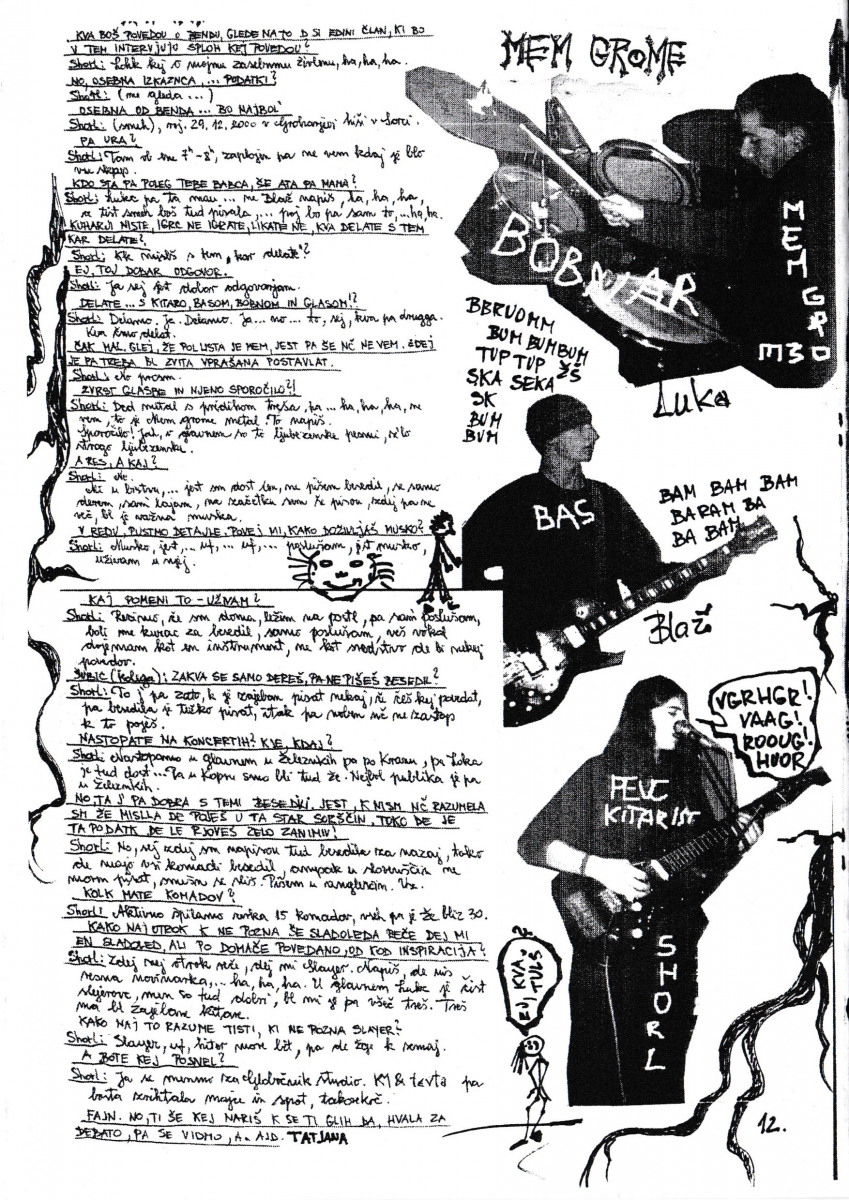 KVA BOŠ POVEDOU O BENDU, GLEDE NA TO D SI EDINI ČLAN, KI BO
V TEM INTERVJUJU SPLOH KEJ POVEDOU?
Shorl: Lohk kej o mojmu zasebnmu živlenu, ha, ha, ha.
NO, OSEBNA IZKAZNCA, ... PODATKI?
Shorl: (me gleda ...)
OSEBNA OD BENDA ... BO NAJBOL'
Shorl: (smeh), roj. 29. 12. 2000 v hiši v
PA URA?
Shorl: Tam ob ene 7h - 8h, zaplojen pa ne vem kdaj je blo
vse skup.
KDO STA PA POLEG TEBE BABCA, ŠE ATA PA MAMA?
Shorl: Lukec pa ta mau ... ne Blaž napiš, ha, ha, ha,
a tist smeh boš tud pisala, ... pej bo pa sam to, ... ha, ha.
KUHARJI NISTE, IGRC NE IGRATE, LIKATE NE, KVA DELATE S TEM
KAR DELATE?
Shorl: Kk misliš s tem, kar delate"?
EJ, TOJ DOBAR ODGOVOR.
Shorl: Ja sej jest dobor odgovarjam.
DELATE ... S KITARO, BASOM, BOBNOM IN GLASOM!?
Shorl: Delamo. Ja. Delamo. Ja ... no ... to, sej, kva pa druzga.
Kva čmo delat.
ČAK MAL, GLEJ, ŽE POL LISTA JE MEM, JEST PA ŠE NČ NE VEM. ZDEJ
JE PA TREBA BL ZVITA VPRAŠANA POSTAVLAT.
Shorl: No prosm.
ZVRST GLASBE IN NJENO SPOROČILO?!
Shorl: Ded metal s pridihom treša, pa ... ha, ha, ha, ne
vem, to je Mem grome metal. To napiš.
Sporočilo? Jah, v glavnem so to ljubezenske pesmi, zlo
strogo ljubezenske.
A RES, A KAJ?
Shorl: Ne.
Ne u bistvu, ... jest sm dost len, ne pišem besedil, se samo
derem, sami lajam, na začetku sem še pisou, zdej pa ne
več, bl je važna muska.
V REDU, PUSTMO DETAJLE, POVEJ MI, KAKO DOŽIVLJAŠ MUSKO?
Shorl: Musko, jest, ... uf, ... uf, ... poslušam, jst musko,
uživam u njej.
KAJ POMENI TO - UŽIVAM?
Shorl: Recimo, če sm doma, ležim na postl, pa sam poslušam,
boli me kurac za besedil, samo poslušam, več vokal
dojemam kot en inštrument, ne kot sredstvo de bi nekej
povedov.
ŠUBIC (kolega): ZAKVA SE SAMO DEREŠ, PA NE PIŠEŠ BESEDIL?
Shorl: To j' pa zato, k je zajeban pisat nekaj, če češ kej povedat,
pa besedila je težko pisat, itak pa noben nč ne zastop
k to poješ.
NASTOPATE NA KONCERTIH? KJE, KDAJ?
Shorl: Nastopamo u glavnem u Železnikih pa po Kranu, pa Loka
je tud dost ... Pa u Kopru smo bli tud že. Nejbol publika je pa
u Železnikih.
NO, TA J' PA DOBRA S TEMI BESEDILI. JEST, K NISM NČ RAZUMELA
SM ŽE MISLLA DE POJEŠ U TA STAR SORŠČIN, TOKO DE JE
TA PODATK DE LE RJOVEŠ ZELO ZANIMIV!
Shorl: No, sej zdej sm napisou tud besedila za nazaj, tako
de majo vsi komadi besedil, ampak u slovenščin ne
morm pisat, smešn se sliš. Pišem u anglešin. Uz.
KOLK MATE KOMADOV?
Shorl: Aktivno špilamo seveka 15 komadov, vseh pa je že bliz 30.
KAKO NAJ OTROK K NE POZNA ŠE SLADOLEDA REČE DEJ MI
EN SLADOLED, ALI PO DOMAČE POVEDANO, OD KOD INSPIRACIJA?
Shorl: Zdej nej otrok reče, dej mi Slayer. Napiš, de nis
resna novinarka, ... ha, ha, ha. U glavnem Lukc je čist
slejerovc, men so tud dobri, bl mi je pa všeč treš. Treš
ma bl zajebane kitare.
KAKO NAJ TO RAZUME TISTI, KI NE POZNA SLAYER?
Shorl: Slayer, uf, hiter more bit, pa de žge k zmaj.
A BOTE KEJ POSNEL?
Shorl: Ja se menmo za studio. KM & tevta pa
bosta zrihtala majce in spot, takorekč.
FAJN. NO, TI ŠE KEJ NARIŠ K SE TI GLIH DA, HVALA ZA
DEBATO, PA SE VIDMO, A. AJD. TATJANA
MEM GROME
BOBNAR
MEM GROME
Luka
BBRUOMM
BUM BUMBUM
TUP TUP ŽŠ
SKA SEKA
SK
BUM
BUM
BAS
BAM BAM BAM
BARAM BA
BA BAM
Blaž
VGRHGR!
VAAG!
ROOUG!
HUOR
PEVC
KITARIST
SHORL
EJ, KVA J
TULS?
12.